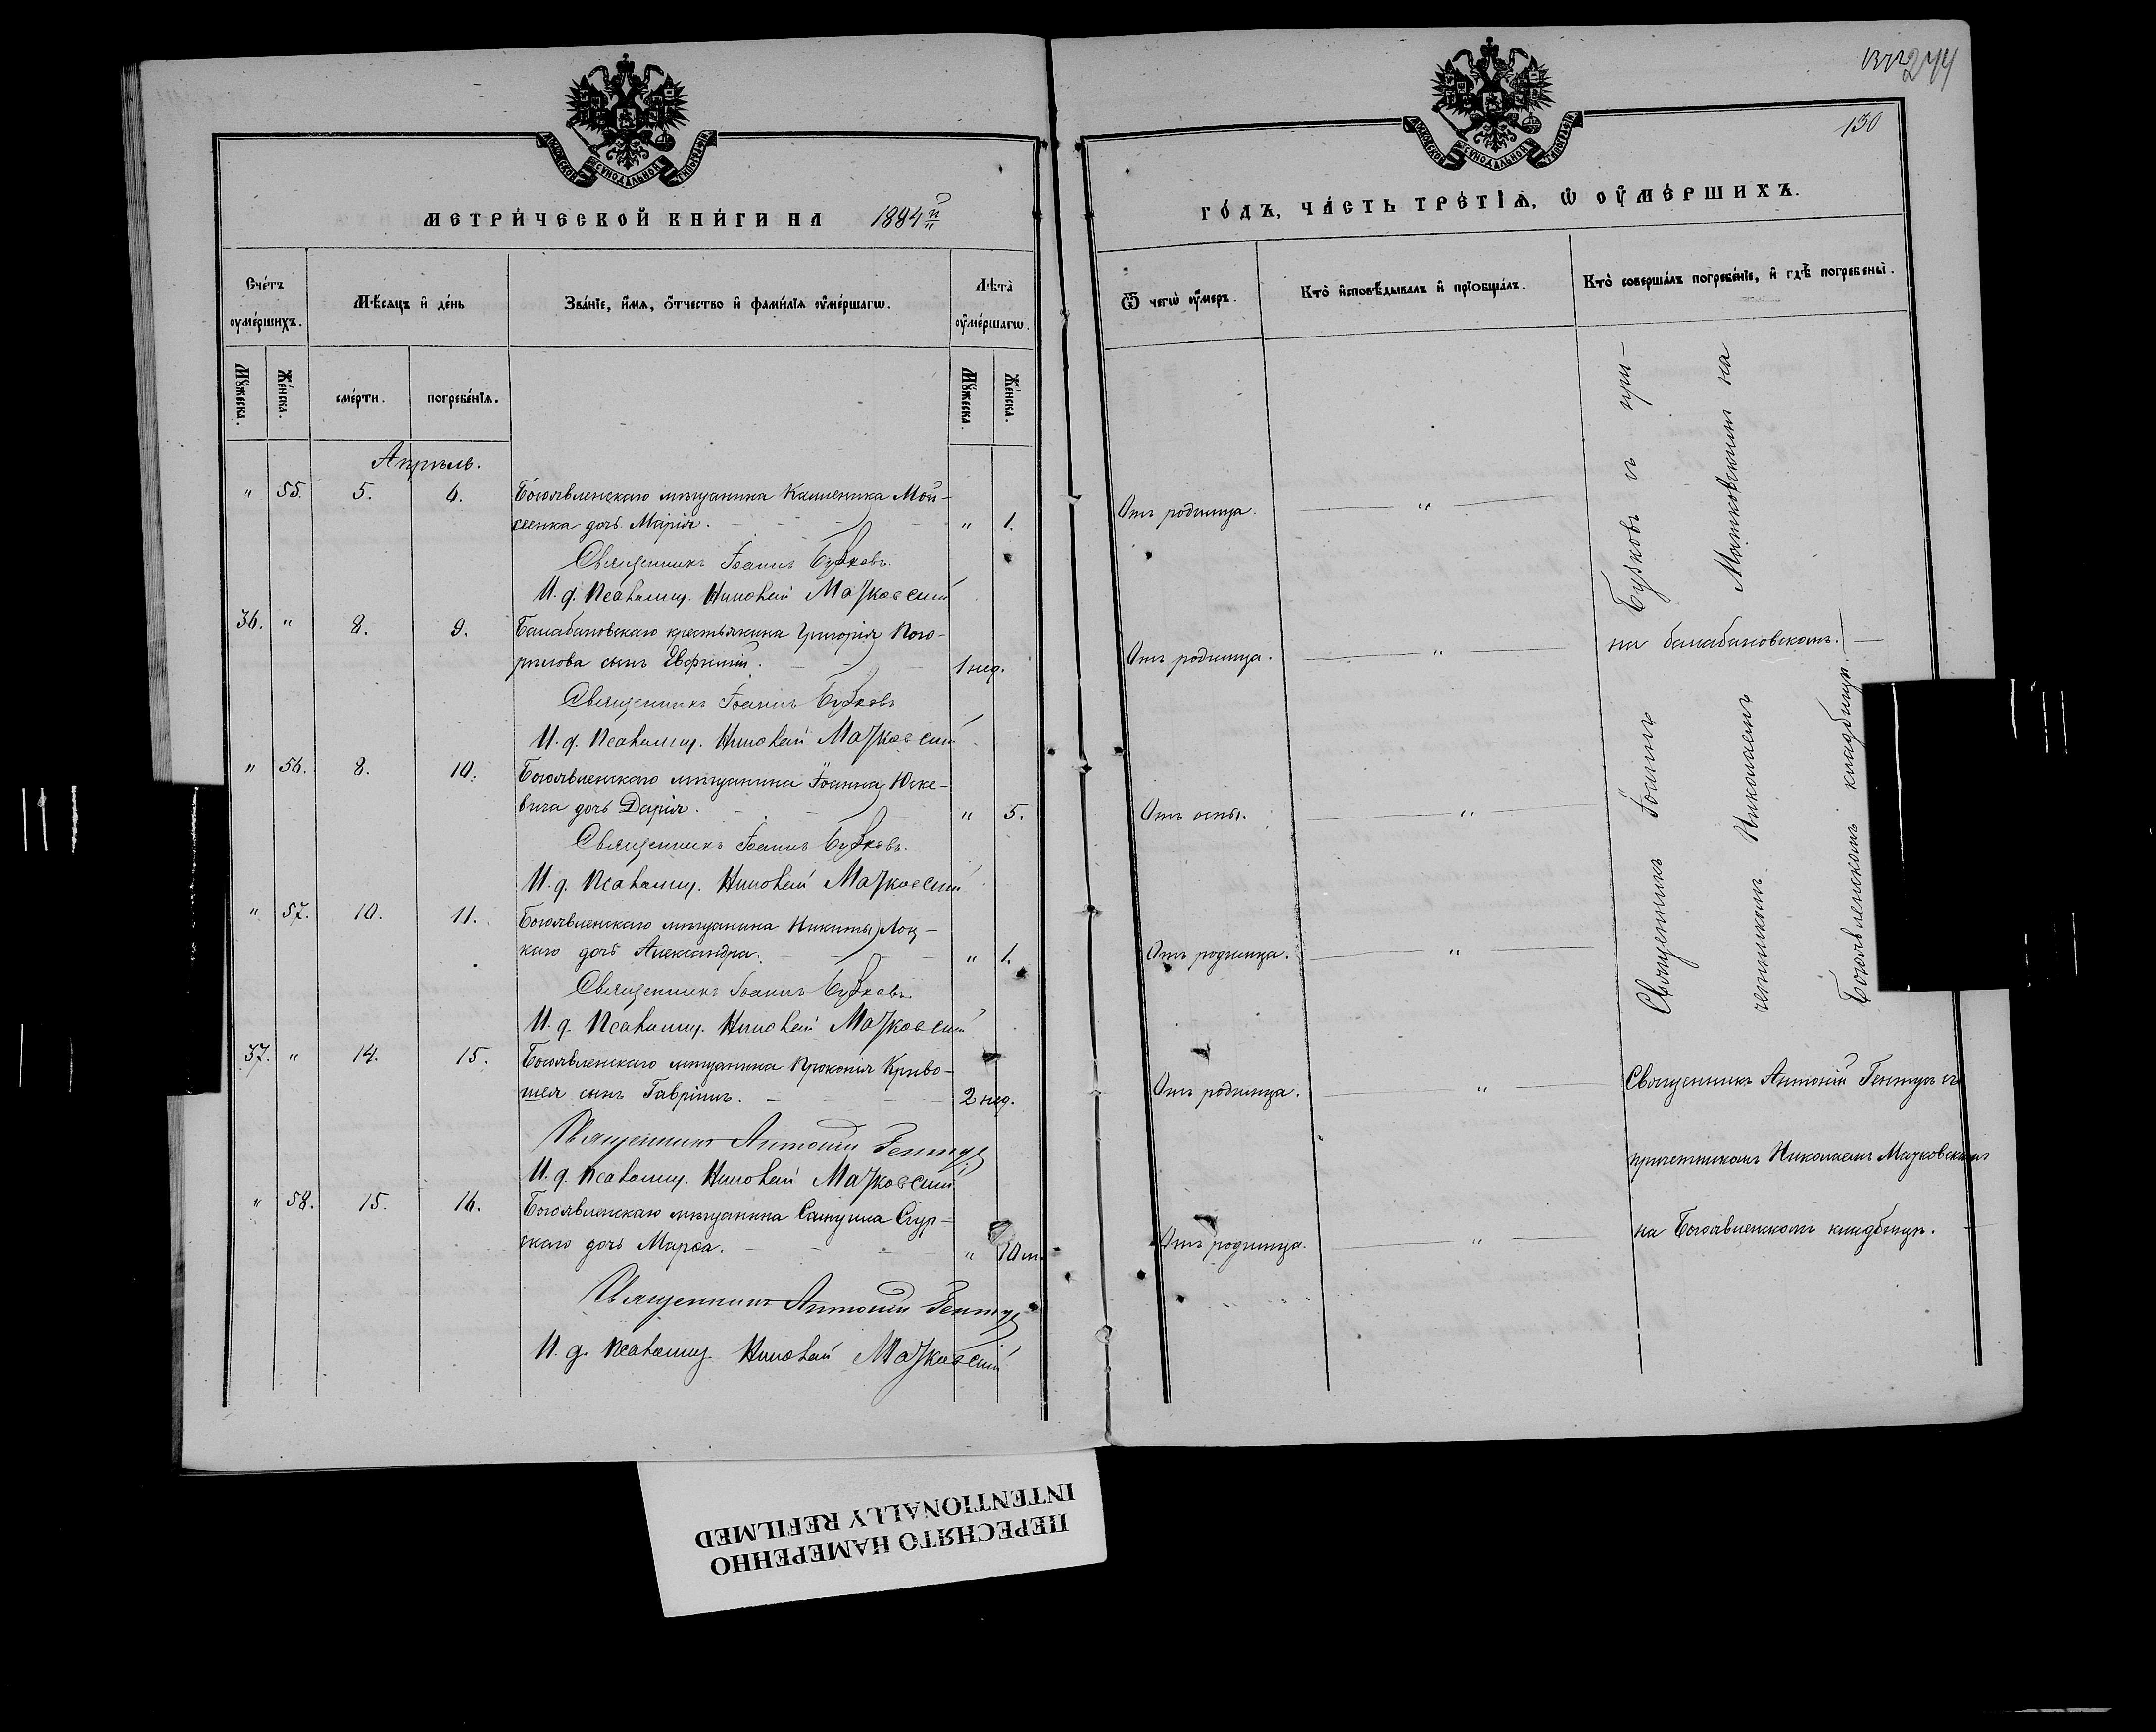 МОСКОВСКОЙ СѴНОДАЛЬНОЙ ТИПОГРАФІИ
МЕТРИ́ЧЕСКОЙ КНИ́ГИ НА 1894й
Сче́тъ оумершихъ.
Мѣсяцъ и де́нь
Зва́нїе, и҆́мя, ѻ҆́тчество и҆ фами́лїя оу҆ме́ршагѡ.
Лѣ́та оу҆ме́ршагѡ.
Мꙋ́жеска.
Же́нска.
сме́рти.
погребе́нїя.
Мꙋ́жеска.
Же́нска.
Апрѣль.
" 55. 5. 6. Богоявленскаго мѣщанина Каленика Мой-
сеенка дочь Марія. " 1.
Священникъ Іоаннъ Бужковъ.
И. д. Псаломщ. Николай Мачковскій
36. " 8. 9. Балабановскаго крестьянина Григорія Пого-
рѣлова сынъ Евфимій. 1 нед.
Священникъ Іоаннъ Бужковъ
И. д. Псаломщ. Николай Мачковскій
" 56. 8. 10. Богоявленскаго мѣщанина Іоанна Юске-
вича дочь Дарія. " 5.
Священникъ Іоаннъ Бужковъ.
И. д. Псаломщ. Николай Мачковскій
" 57. 10. 11. Богоявленскаго мѣщанина Никиты Лоц-
каго дочь Александра. " 1.
Священникъ Іоаннъ Бужковъ.
И. д. Псаломщ. Николай Мачковскій
37. " 14. 15. Богоявленскаго мѣщанина Прокопія Криво-
шея сынъ Гавріилъ. 2 нед.
Священникъ Антоній Гентуъ
И. д. Псаломщ. Николай Мачковскій
" 58. 15. 16. Богоявленскаго мѣщанина Самуила Сгур-
скаго дочь Марѳа. " 10 м.
Священникъ Антоній Гентуъ
И. д. Псаломщ. Николай Мачковскій
244
130
МОСКОВСКОЙ СѴНОДАЛЬНОЙ ТИПОГРАФІИ
ГО́ДЪ, ЧА́СТЬ ТРЕ́ТІѦ, Ѡ ОУ҆МЕ́РШИХЪ.
Ѿ чегѡ̀ оу҆́меръ.
Кто̀ и҆сповѣ́дывалъ и҆ прїобща́лъ.
Кто̀ соверша́лъ погребе́нїе, и҆ гдѣ̀ погребены̀.
Отъ родимца. "
Отъ родимца. " на балабановскомъ.
Отъ оспы. "
Отъ родимца. "
Священникъ Іоаннъ Бужковъ и при-
четникомъ Николаемъ Мачковскимъ на
Богоявленскомъ кладбищѣ.
Отъ родимца. " Священникъ Антоній Гентуъ съ
причетникомъ Николаемъ Мачковскимъ
Отъ родимца. " на Богоявленскомъ кладбищѣ.
ПЕРЕСНЯТО НАМЕРЕННО
INTENTIONALLY REFILMED